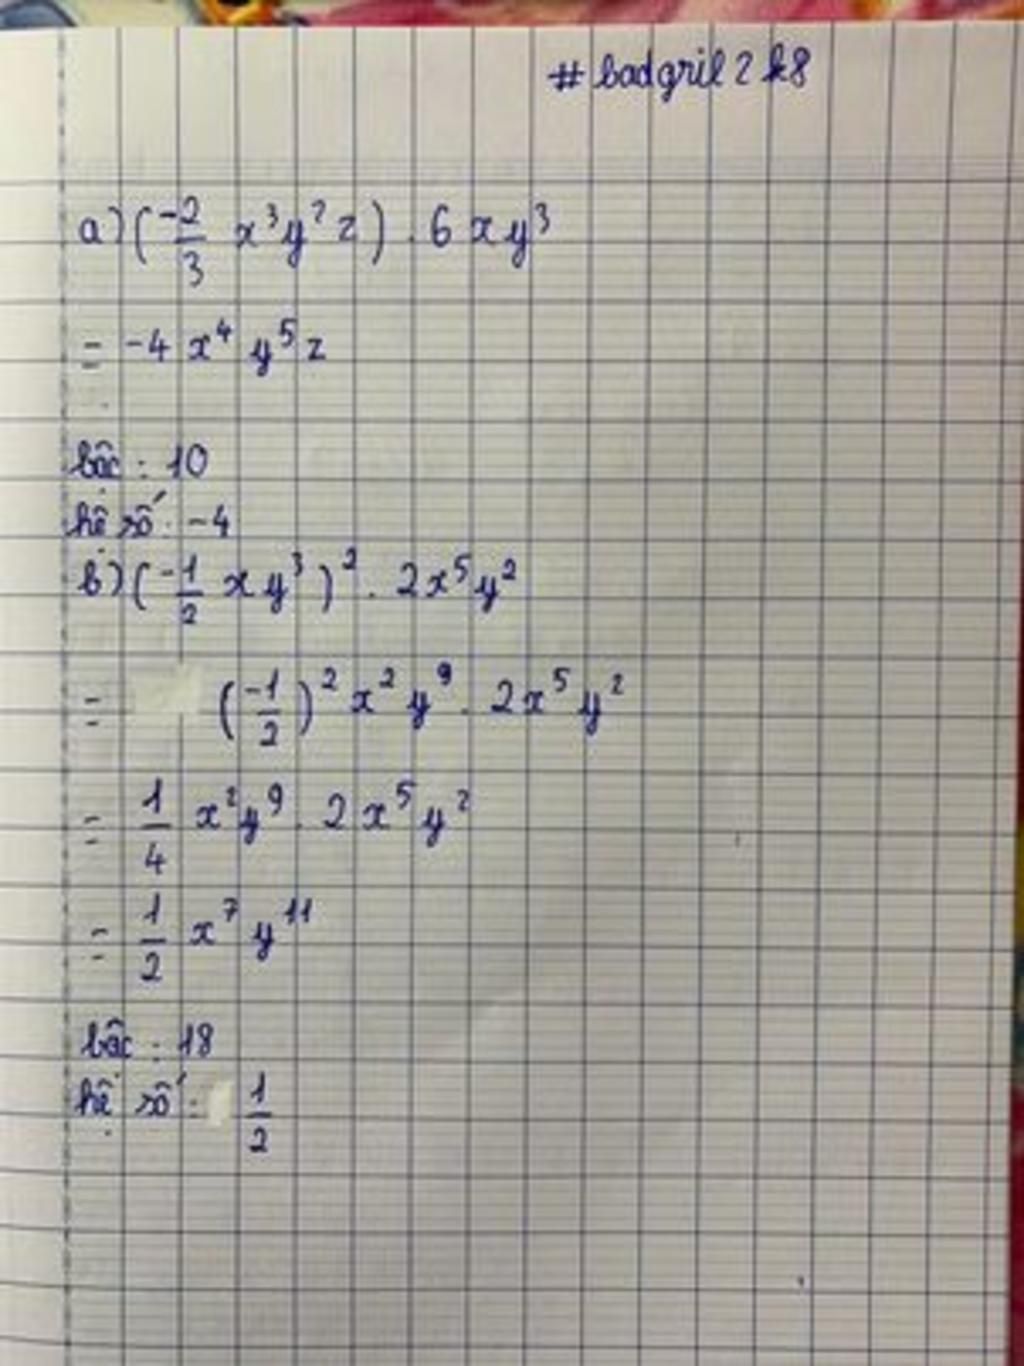 # badgril 2k8
a) (-2/3 x³y²z) . 6xy³
= -4 x⁴ y⁵ z
bậc : 10
hệ số : -4
b) (-1/2 xy³)² . 2x⁵y²
= (-1/2)² x² y⁹ . 2x⁵ y²
= 1/4 x²y⁹ . 2x⁵y²
= 1/2 x⁷ y¹¹
bậc : 18
hệ số : 1/2